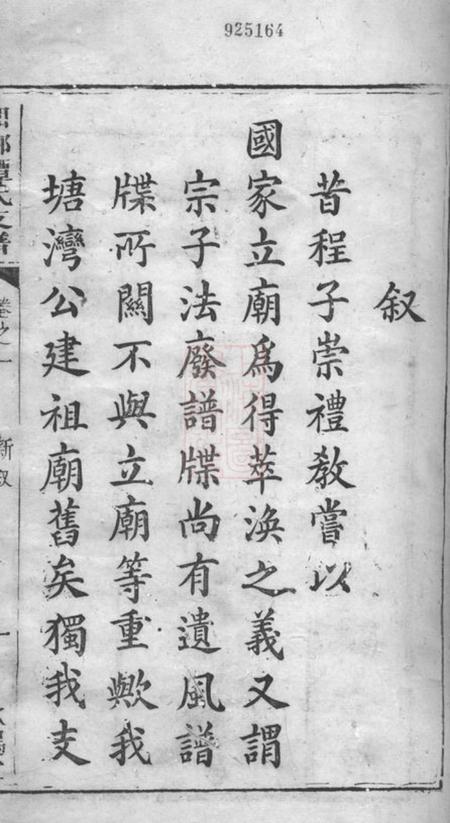 925164
叙
昔程子崇禮敎嘗以
國家立廟爲得萃渙之義又謂
宗子法廢譜牒尚有遺風譜
牒所關不與立廟等重歟我
塘灣公建祖廟舊矣獨我支
譚氏支譜
卷之一
新叙